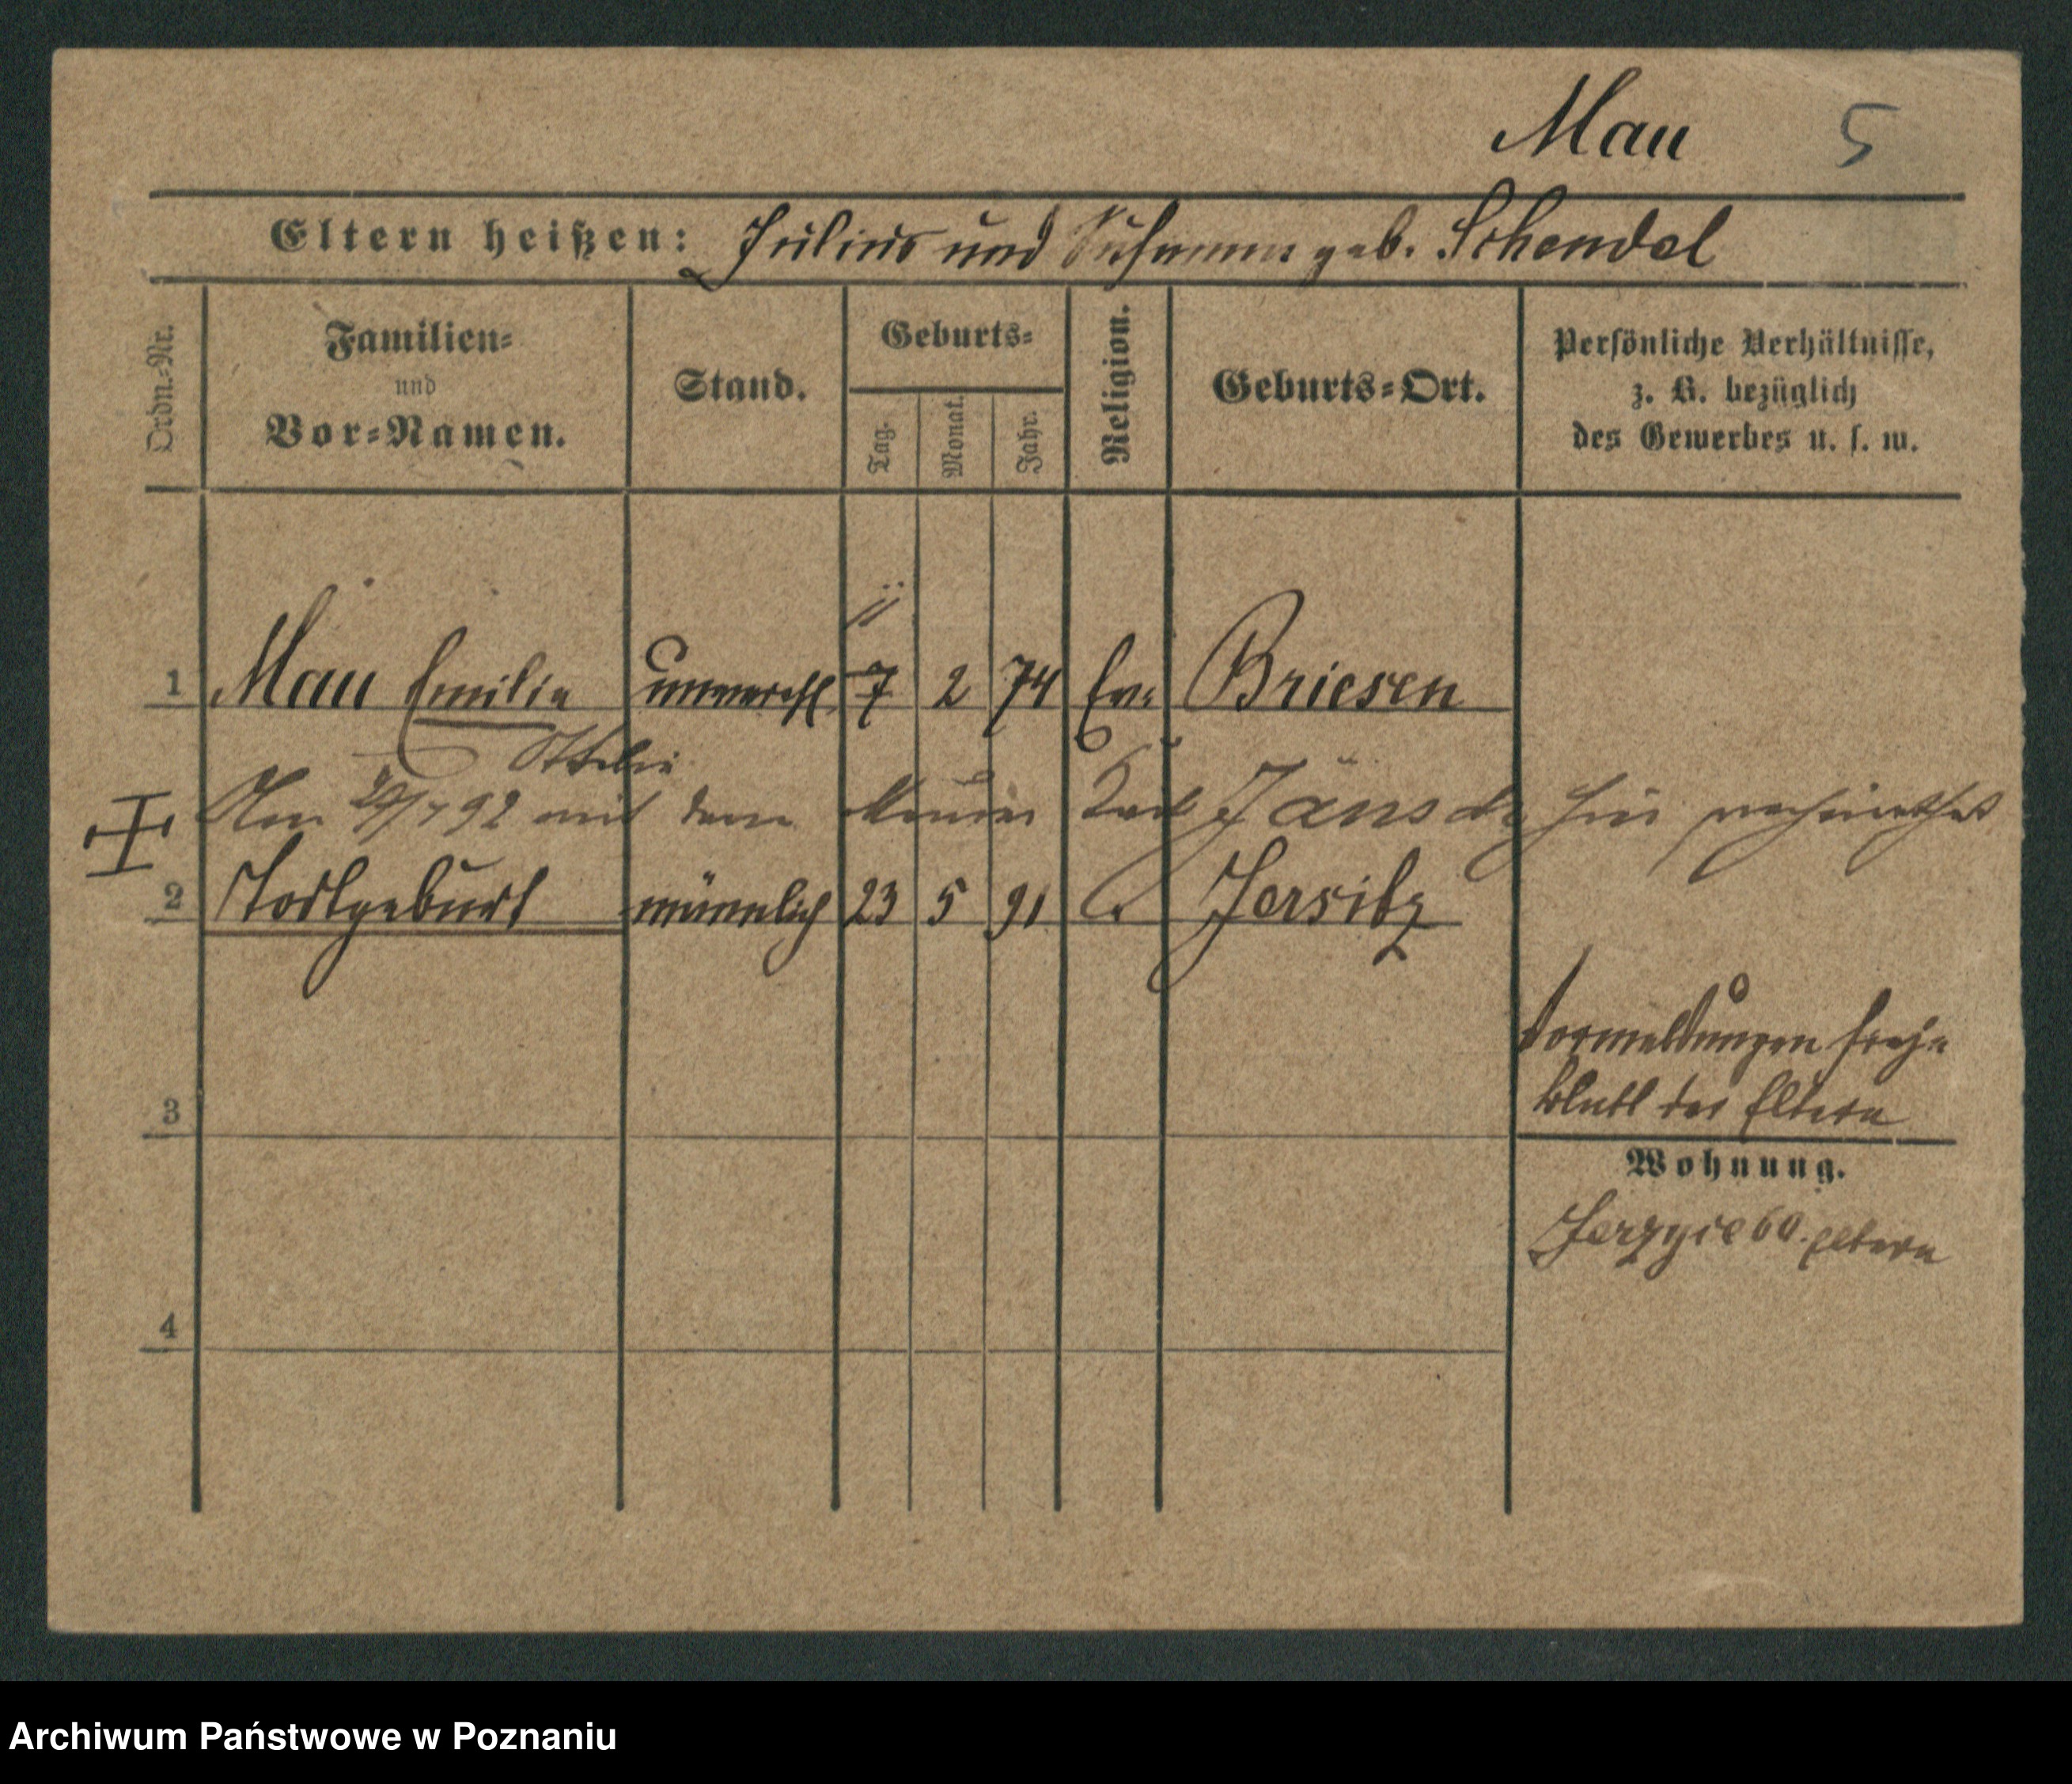 Mau 5
Eltern heißen: Julius und Susanna geb. Schendel
Ordn.-Nr.
Familien-
und
Vor-Namen.
Stand.
Geburts-
Tag.
Monat.
Jahr.
Religion.
Geburts-Ort.
Persönliche Verhältnisse,
z. B. bezüglich
des Gewerbes u. s. w.
11
1 Mau Emilie unverehl 7 2 74 Ev. Briesen
Ottilie
Am 24/7 92 mit dem Maurer Karl Jänsch hier verheirathet
2 Todtgeburt männlich 23 5 91 Jersitz
Vormeldungen
blatt der Eltern
3
Wohnung.
Jerzyce 60. Eltern
4
Archiwum Państwowe w Poznaniu